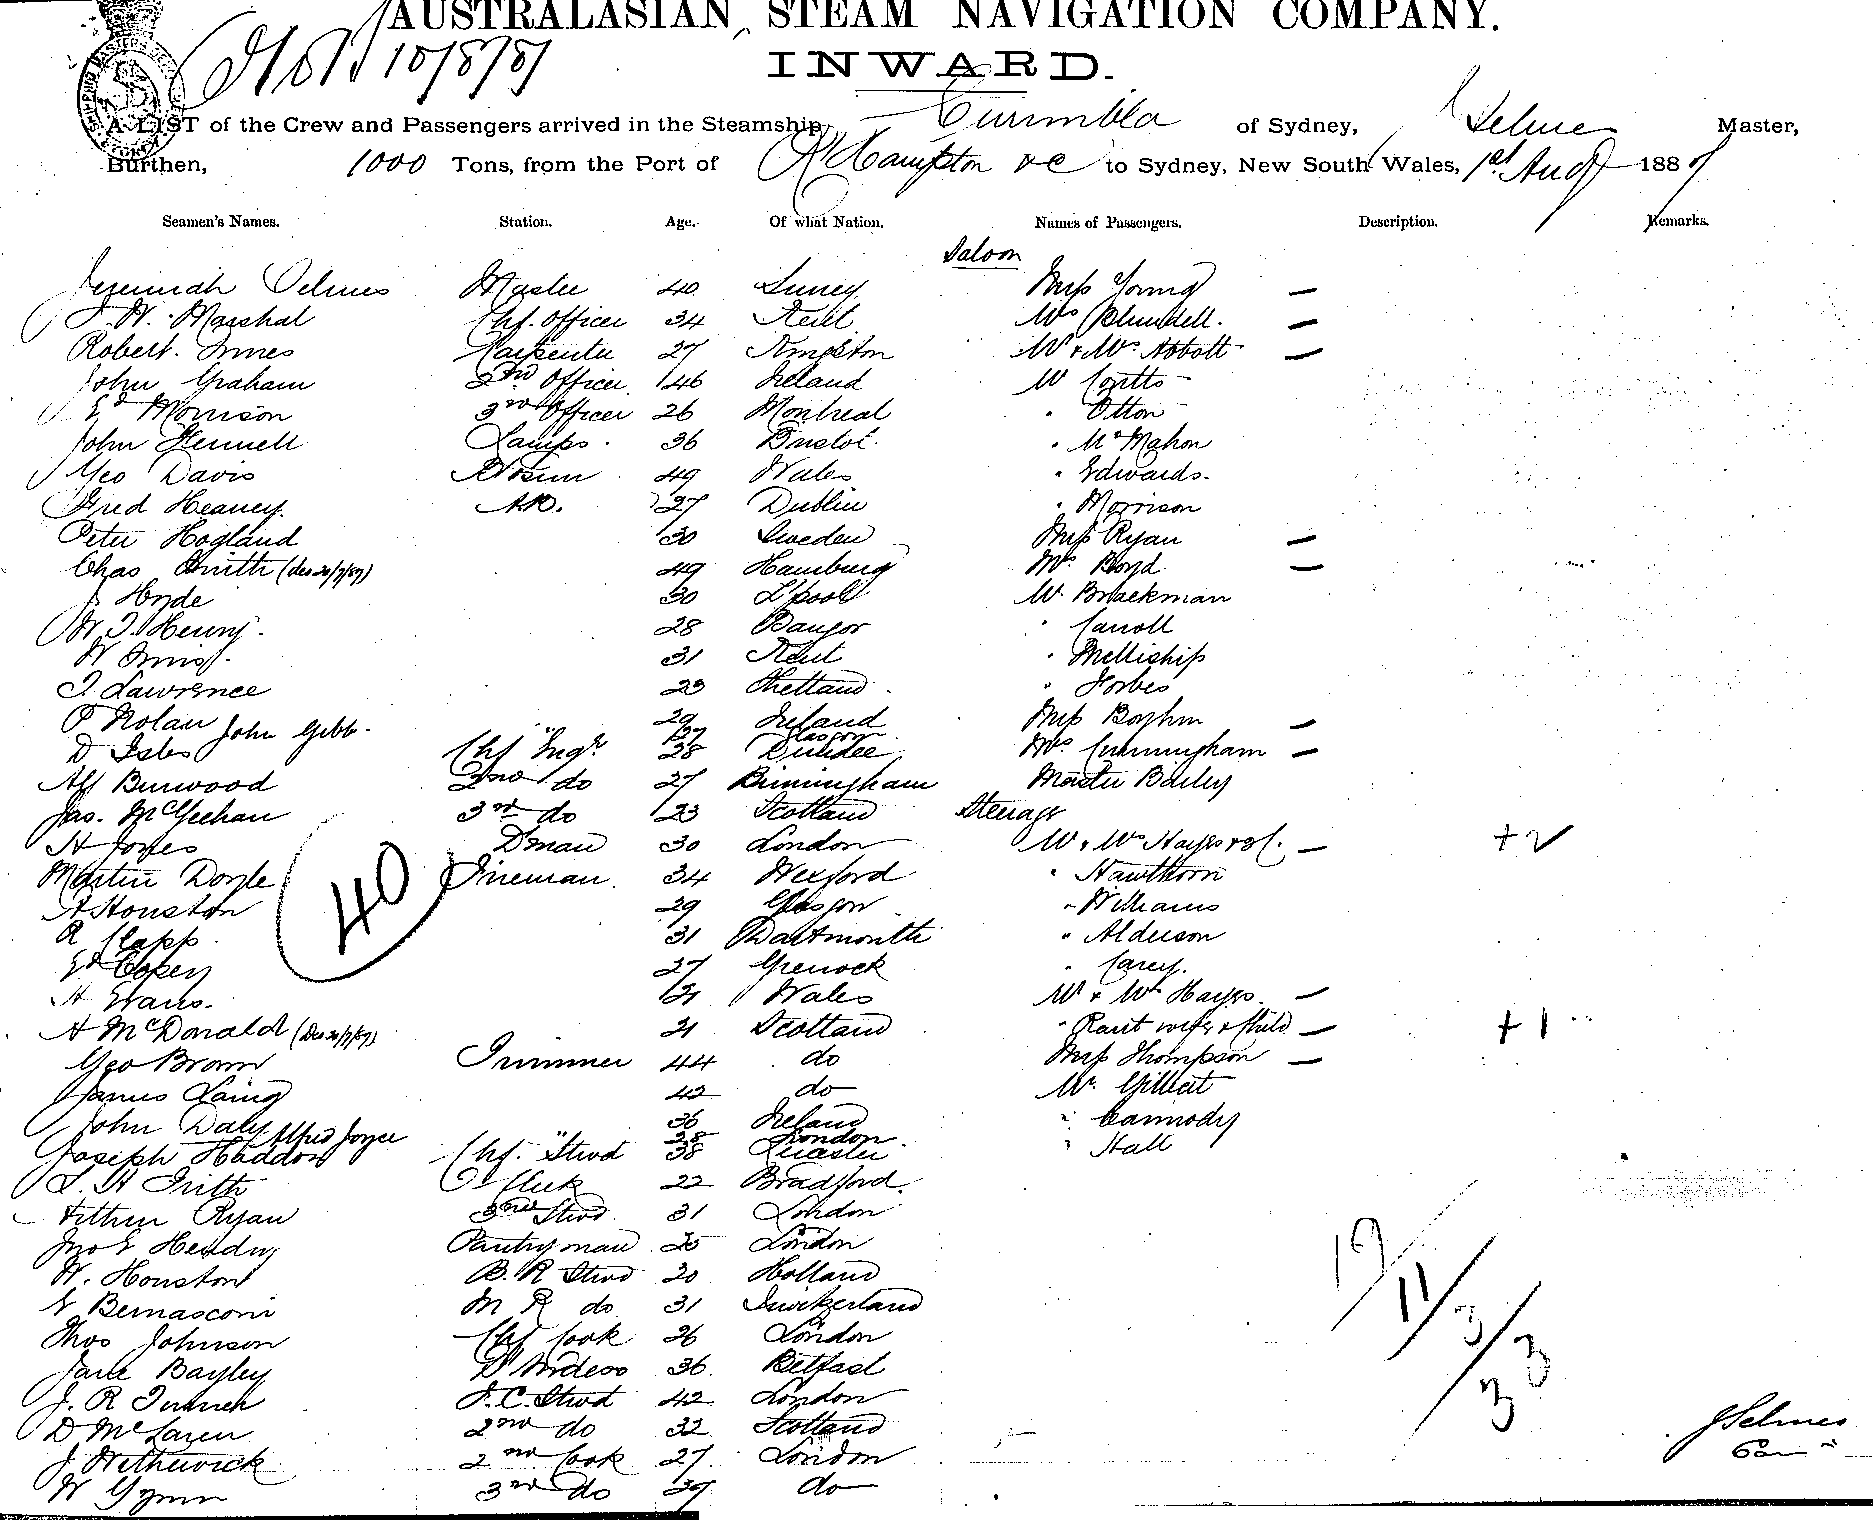 AUSTRALASIAN STEAM NAVIGATION COMPANY.
INWARD.
A LIST of the Crew and Passengers arrived in the Steamship Corumbla of Sydney, Selmes Master,
Burthen, 1000 Tons, from the Port of R'Hampton &c to Sydney, New South Wales, 1st Augt 1887
Seamen's Names. Station. Age. Of what Nation. Names of Passengers. Description. Remarks.
Saloon
Jeremiah Selmes Master 40 Surrey Miss Young –
J. W. Marshal Chf. Officer 34 Kent Mrs Blundell. –
Robert Innes Carpenter 27 Kingston Mr & Mrs Abbott –
John Graham 2nd Officer 46 Ireland Mr Coutts
Ed Morrison 3rd Officer 26 Montreal " Otton
John Hennell Lamps. 36 Bristol " McMahon
Geo Davis Bosun 49 Wales " Edwards.
Fred Heaney. AB. 27 Dublin " Morrison
Peter Hogland 30 Sweden Miss Ryan –
Chas Smith (des 20/7/87) 49 Hamburg Mrs Boyd –
J Hyde 30 L'pool Mr Brackman
W. J. Henry. 28 Bangor " Carroll
W Innis. 31 Kent " Melliship
J Lawrence 23 Shetland " Forbes
P Nolan 29 Ireland Miss Boyhm –
John Gibb. 37 Glasgow
D Isles Chf Engr 38 Dundee Mrs Cunningham –
Alf Burwood 2nd do 27 Birmingham Master Bailey
Jas. McGeehan 3rd do 23 Scotland Steerage
H Jones D'man 30 London Mr & Mrs Hayes & 2 C. – +2
Martin Doyle Fireman 34 Wexford " Hawthorn
A Houston 29 Glasgow " Williams
R Clapp 31 Dartmouth " Alderson
Ed Copey 27 Greenock " Carey.
H Evans. 21 Wales Mr & Mrs Hayes –
A McDonald (Des 20/7/87) 21 Scotland " Rant wife & child – +1
Geo Brown Trimmer 44 do Miss Thompson –
James Laing 42 do Mr. Gilbert
John Daly 36 Ireland " Carmody
Alfred Joyce 28 London
Joseph Haddon Chf. Stwd 38 Leicester " Hall
L. H Frith Clerk 22 Bradford.
Arthur Ryan 2nd Stwd 31 London
Jno E Hendry Pantryman 25 London
W. Houston B. R Stwd 20 Holland
V Bernasconi M R do 31 Switzerland
Thos Johnson Chf Cook 26 London
Jane Bayley St'wdess 36 Belfast
J. R Turner F. C. Stwd 42 London
D McLaren 2nd do 32 Scotland
J Netherwick 2nd Cook 27. London
W Gynn 3rd do 39 do
40
19/11/3/3
3
J Selmes